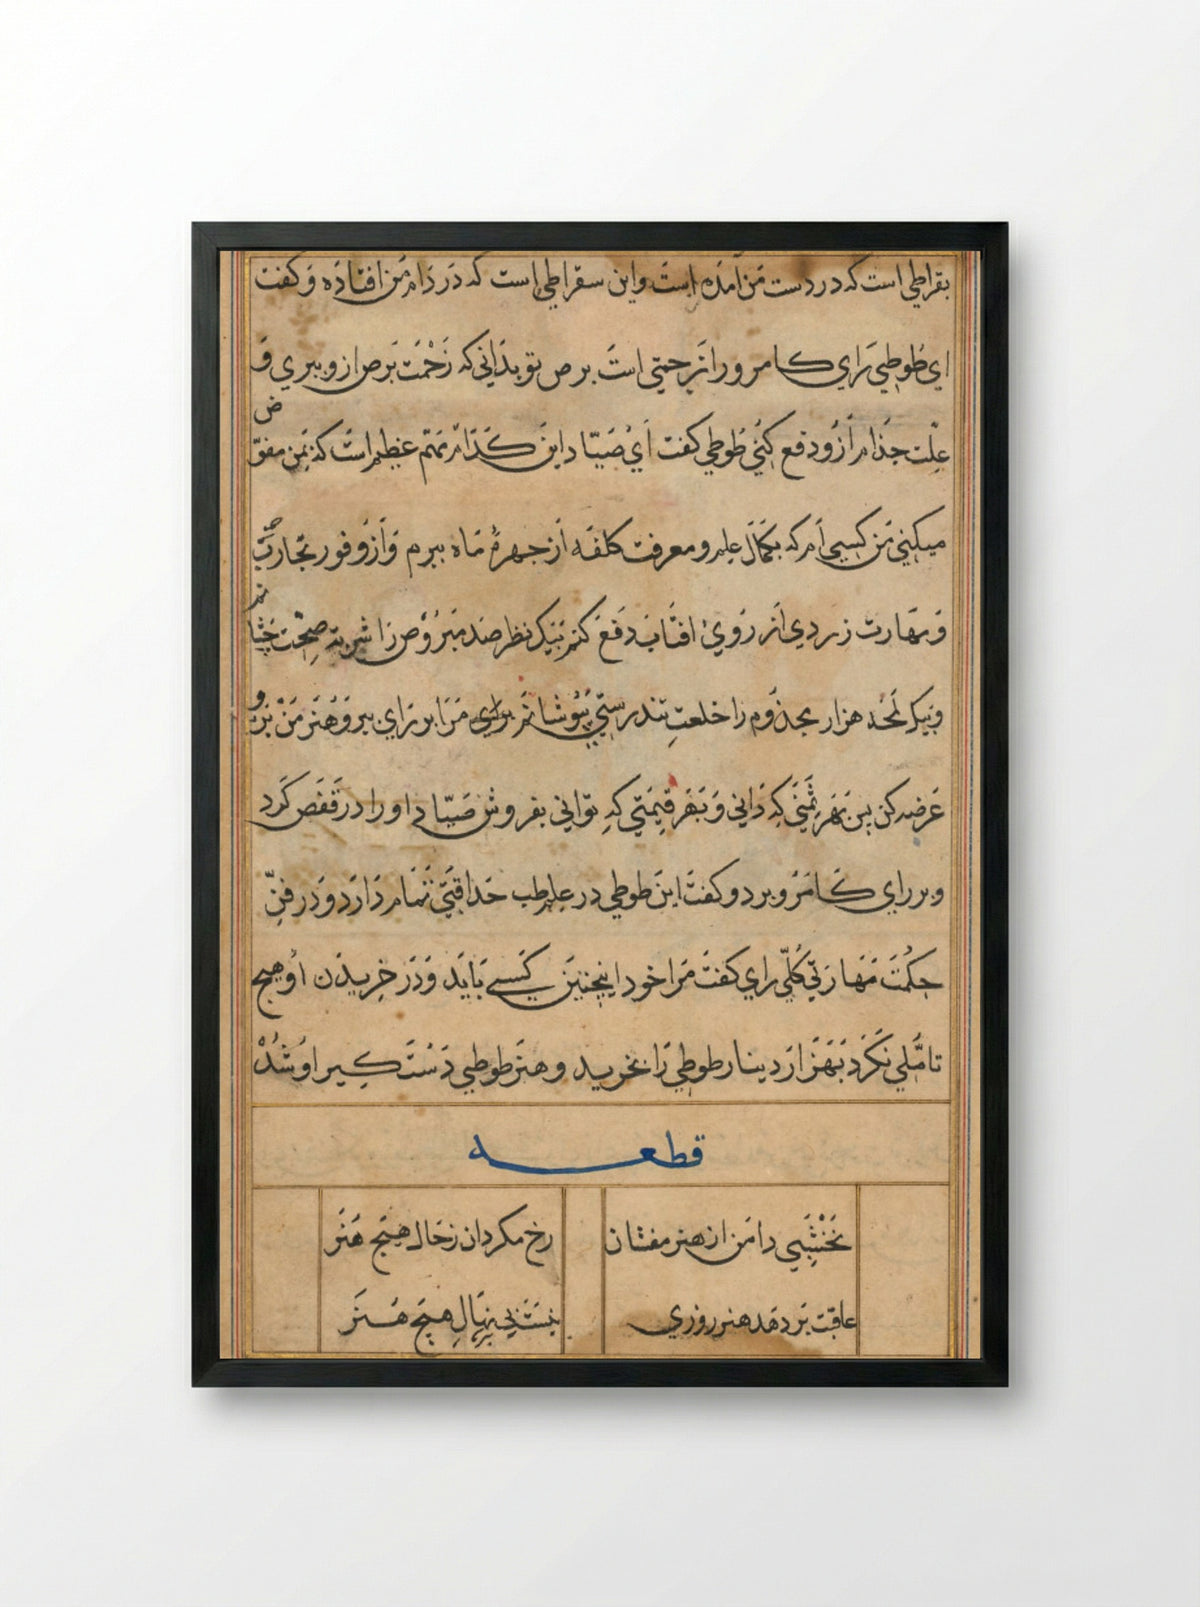 بقراطی است که در دست من آمده است و این سقراطی است که در دام من افتاده و گفت
ای طوطی رای کامرو را زحمتی است برص تو بدانی که زحمت برص ازو ببری و
علت جذام ازو دفع کنی طوطی کفت ای صیاد این کدام مهم عظیم است که بمن مفوض
میکنی من کسی ام که بکمال علم و معرفت کلفه از چهره ماه ببرم و از وفور تجارب
و مهارت زردی از روی افتاب دفع کنم بیک نظر صد مبروص را شربت صحت چشانم
و بیک لحد هزار مجذوم را خلعت تندرستی پوشانم برای مرا بر رای ببر و هنر من برو
عرضه کن پس بهر ثمنی که دانی و بهر قیمتی که توانی بفروش صیاد او را در قفص کرد
و بر رای کامرو برد و کفت این طوطی در علم طب حذاقتی تمام دارد و در فن
حکمت مهارتی کلی رای کفت مرا خود اینچنین کسی باید و در خریدن او هیچ
تاملی نکرد بهزار دینار طوطی را بخرید و هنر طوطی دست کیر او شد
قطعه
نخشبی دامن از هنر مفشان رخ مکردان ز حال هیچ هنر
عاقبت بر دهد هنر روزی نهال هیچ هنر